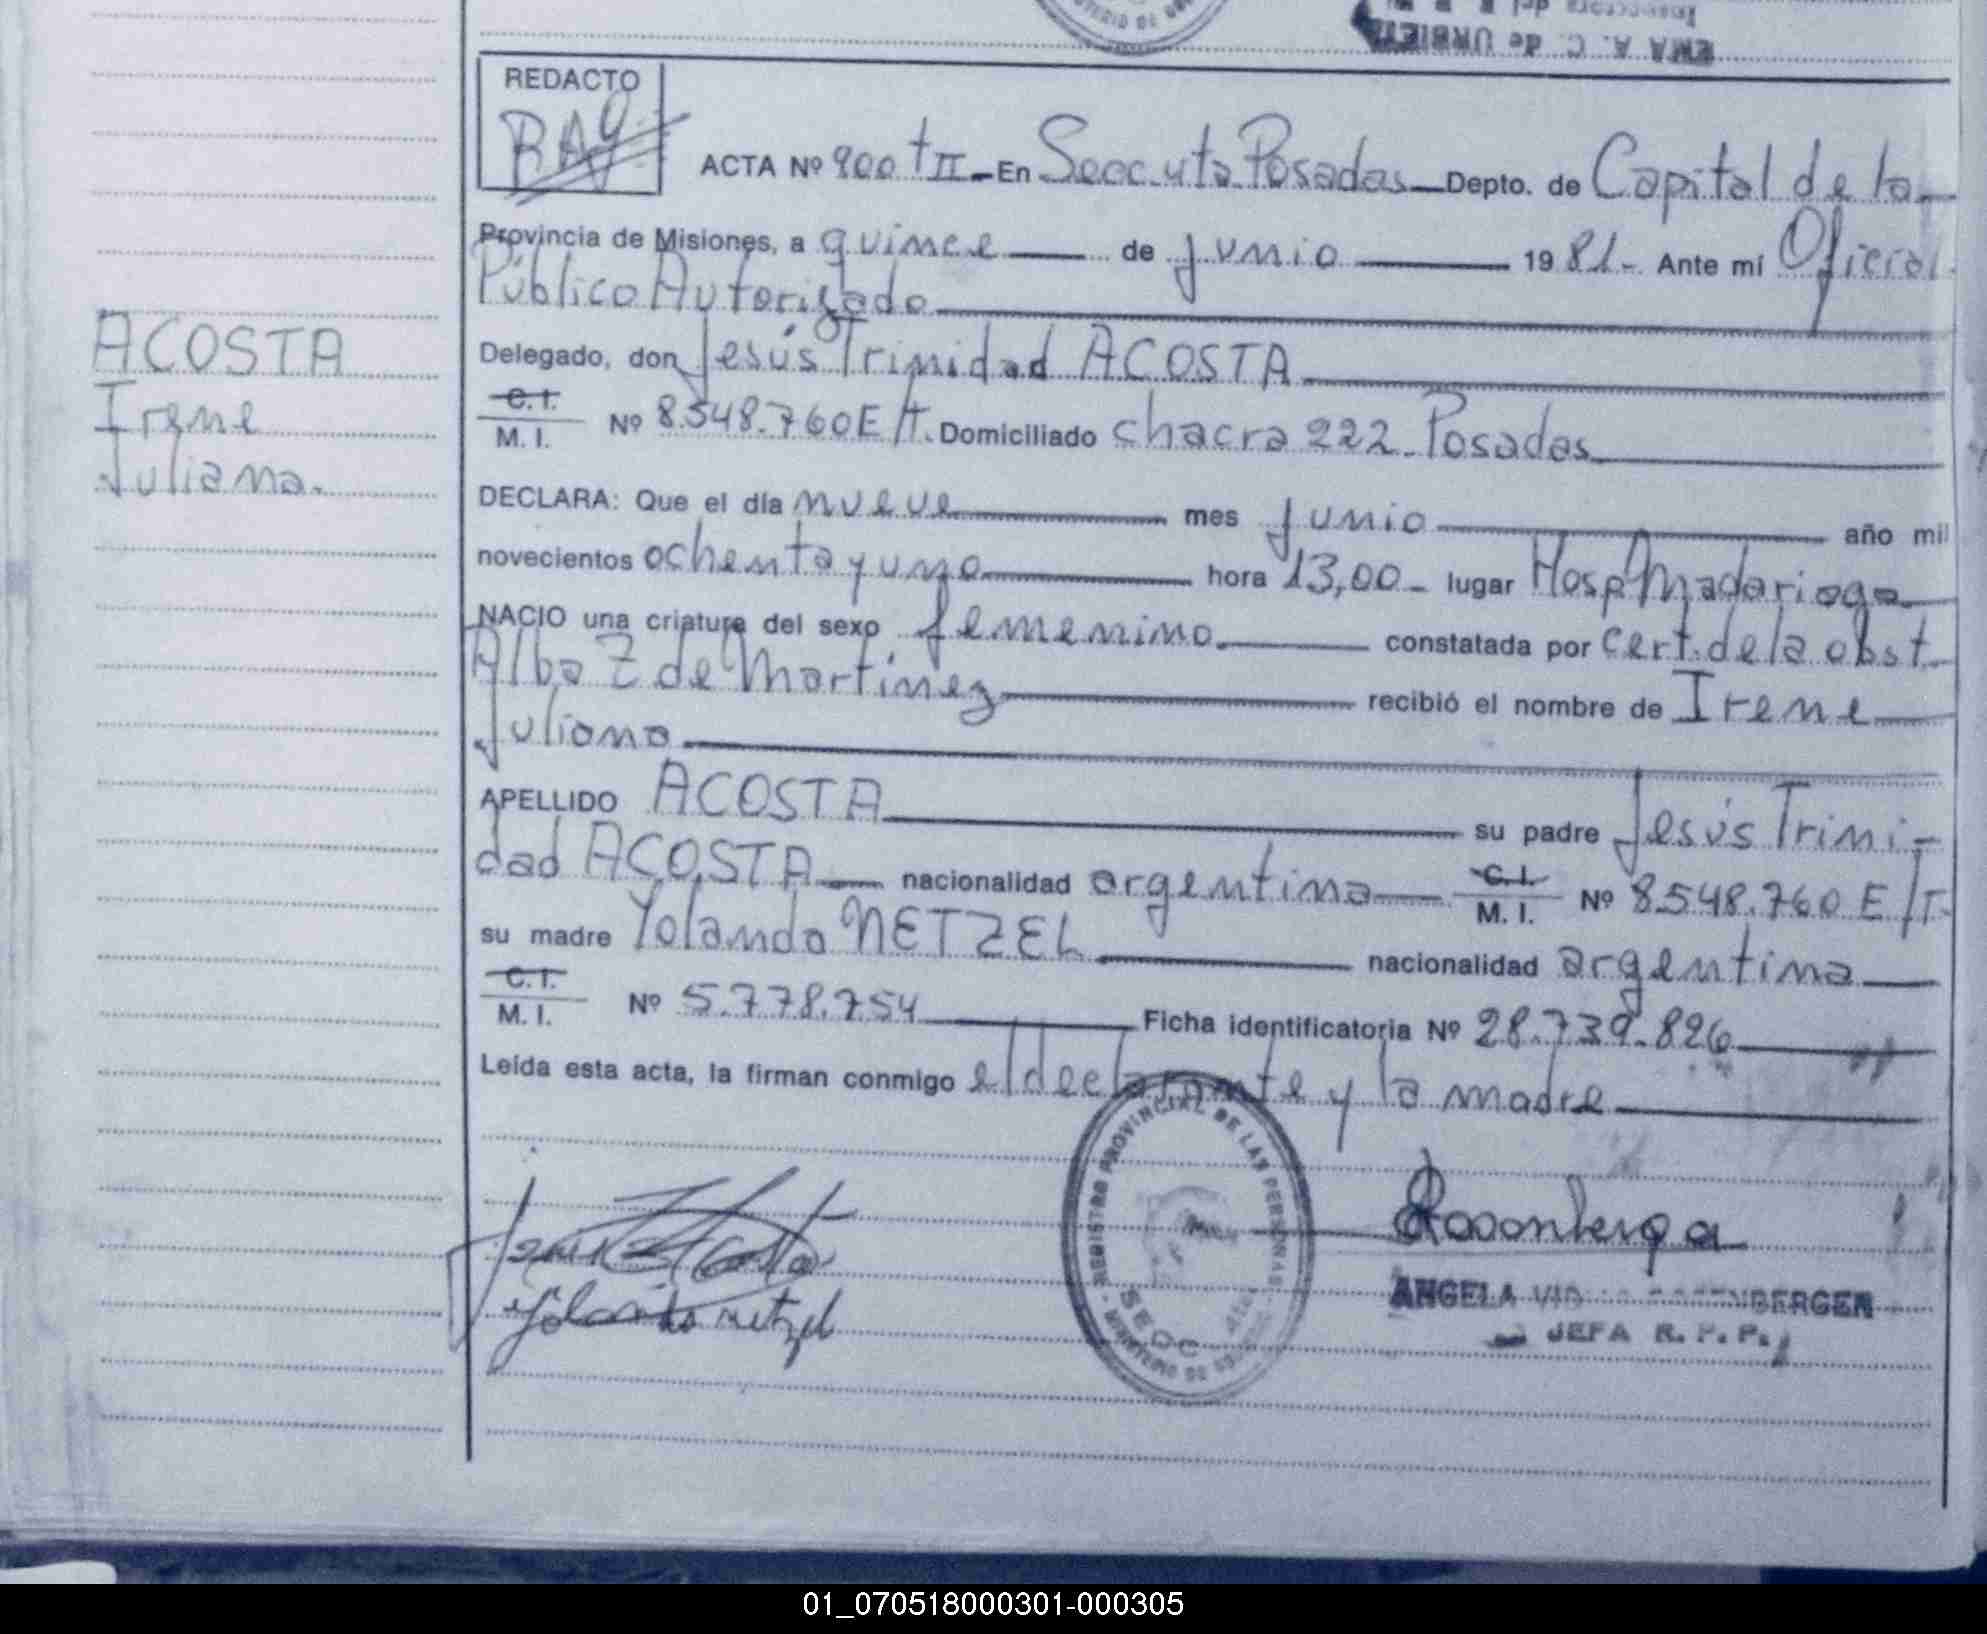 EMA A. C. de URBIETA
REDACTO
ACTA Nº 900 t II - En Secc. 4ta Posadas Depto. de Capital de la
Provincia de Misiones, a quince de junio 1981.- Ante mí Oficial
Público Autorizado
Delegado, don Jesús Trinidad ACOSTA
C.I.
M. I. Nº 8.548.760 E/T. Domiciliado chacra 222 - Posadas
ACOSTA
Irene
Juliana.
DECLARA: Que el día nueve mes junio año mil
novecientos ochenta y uno hora 13,00 - lugar Hosp Madariaga
NACIO una criatura del sexo femenino constatada por cert. de la obst.
Alba Z de Martínez recibió el nombre de Irene
Juliana
APELLIDO ACOSTA su padre Jesús Trini-
dad ACOSTA nacionalidad argentina C.I.
M. I. Nº 8.548.760 E/T.
su madre Yolanda NETZEL nacionalidad argentina
C.I.
M. I. Nº 5.778.754 Ficha identificatoria Nº 28.739.826
Leída esta acta, la firman conmigo el declarante y la madre
REGISTRO PROVINCIAL DE LAS PERSONAS
SECC. 4ta.
MINISTERIO DE
Yolanda netzel
ANGELA
JEFA R. P. P.
01_070518000301-000305